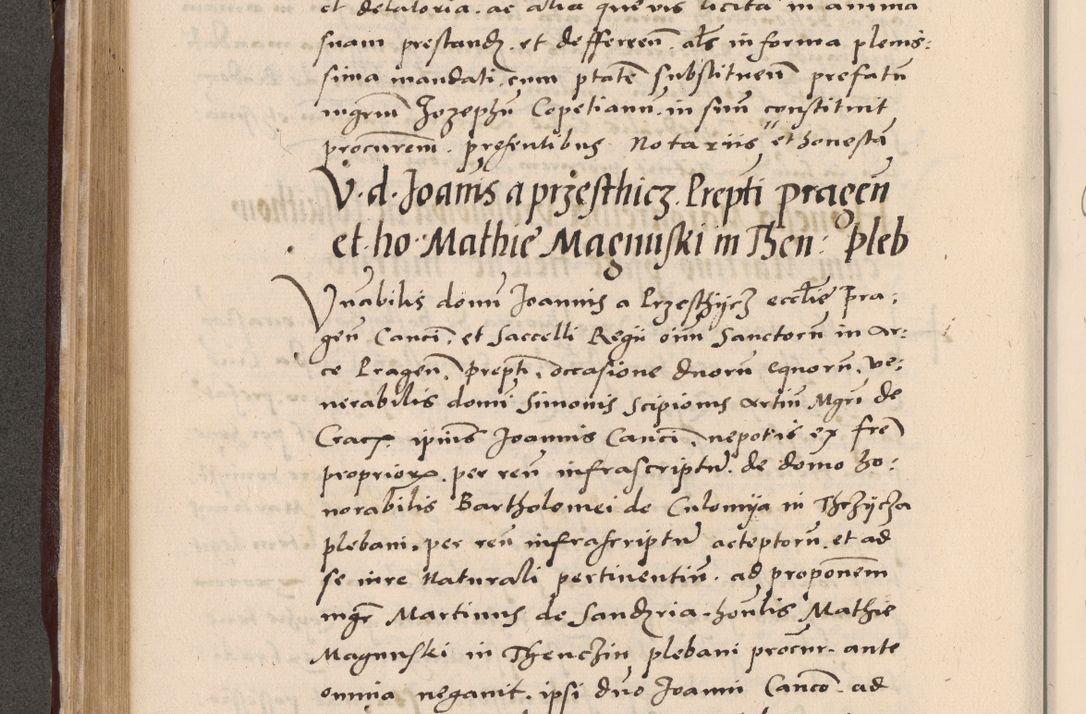 et delatoria. ac alia quevis licita in anima
suam prestand. et defferen. als in forma plenis:
sima mandati, cum ptate substituen prefatu
mgrum Jozephu Copetianu, in suu constituit
procurem. presentibus Notariis et honesta
V. d. Joanis a przesthicz. Prepti pragen
et. ho. Mathie Magnuski in Then: pleb
Vnabilis domn Joannis a Przesthycz eccllie Pra:
gen Canci, et Saccelli Regii oim Sanctoru in ar:
ce Pragen, Prepti, occasione duoru equoru, ve:
nerabilis domi Simonis Scipionis artiu Mgri de
Crac. ipius Joannis Canci, nepotis ex fre
propriore. per reu infrascriptu. de domo ho:
norabilis Bartholomei de Culomija in Thczycza
plebani. per reu infrascriptu acteptoru. et ad
se iure naturali pertinentiu. ad proponem
mgr Martinus de Sandzria. honlis Mathie
Magnuski in Thenczin plebani procur. ante
omnia neganit. ipsi duo Joanni Canco. ad